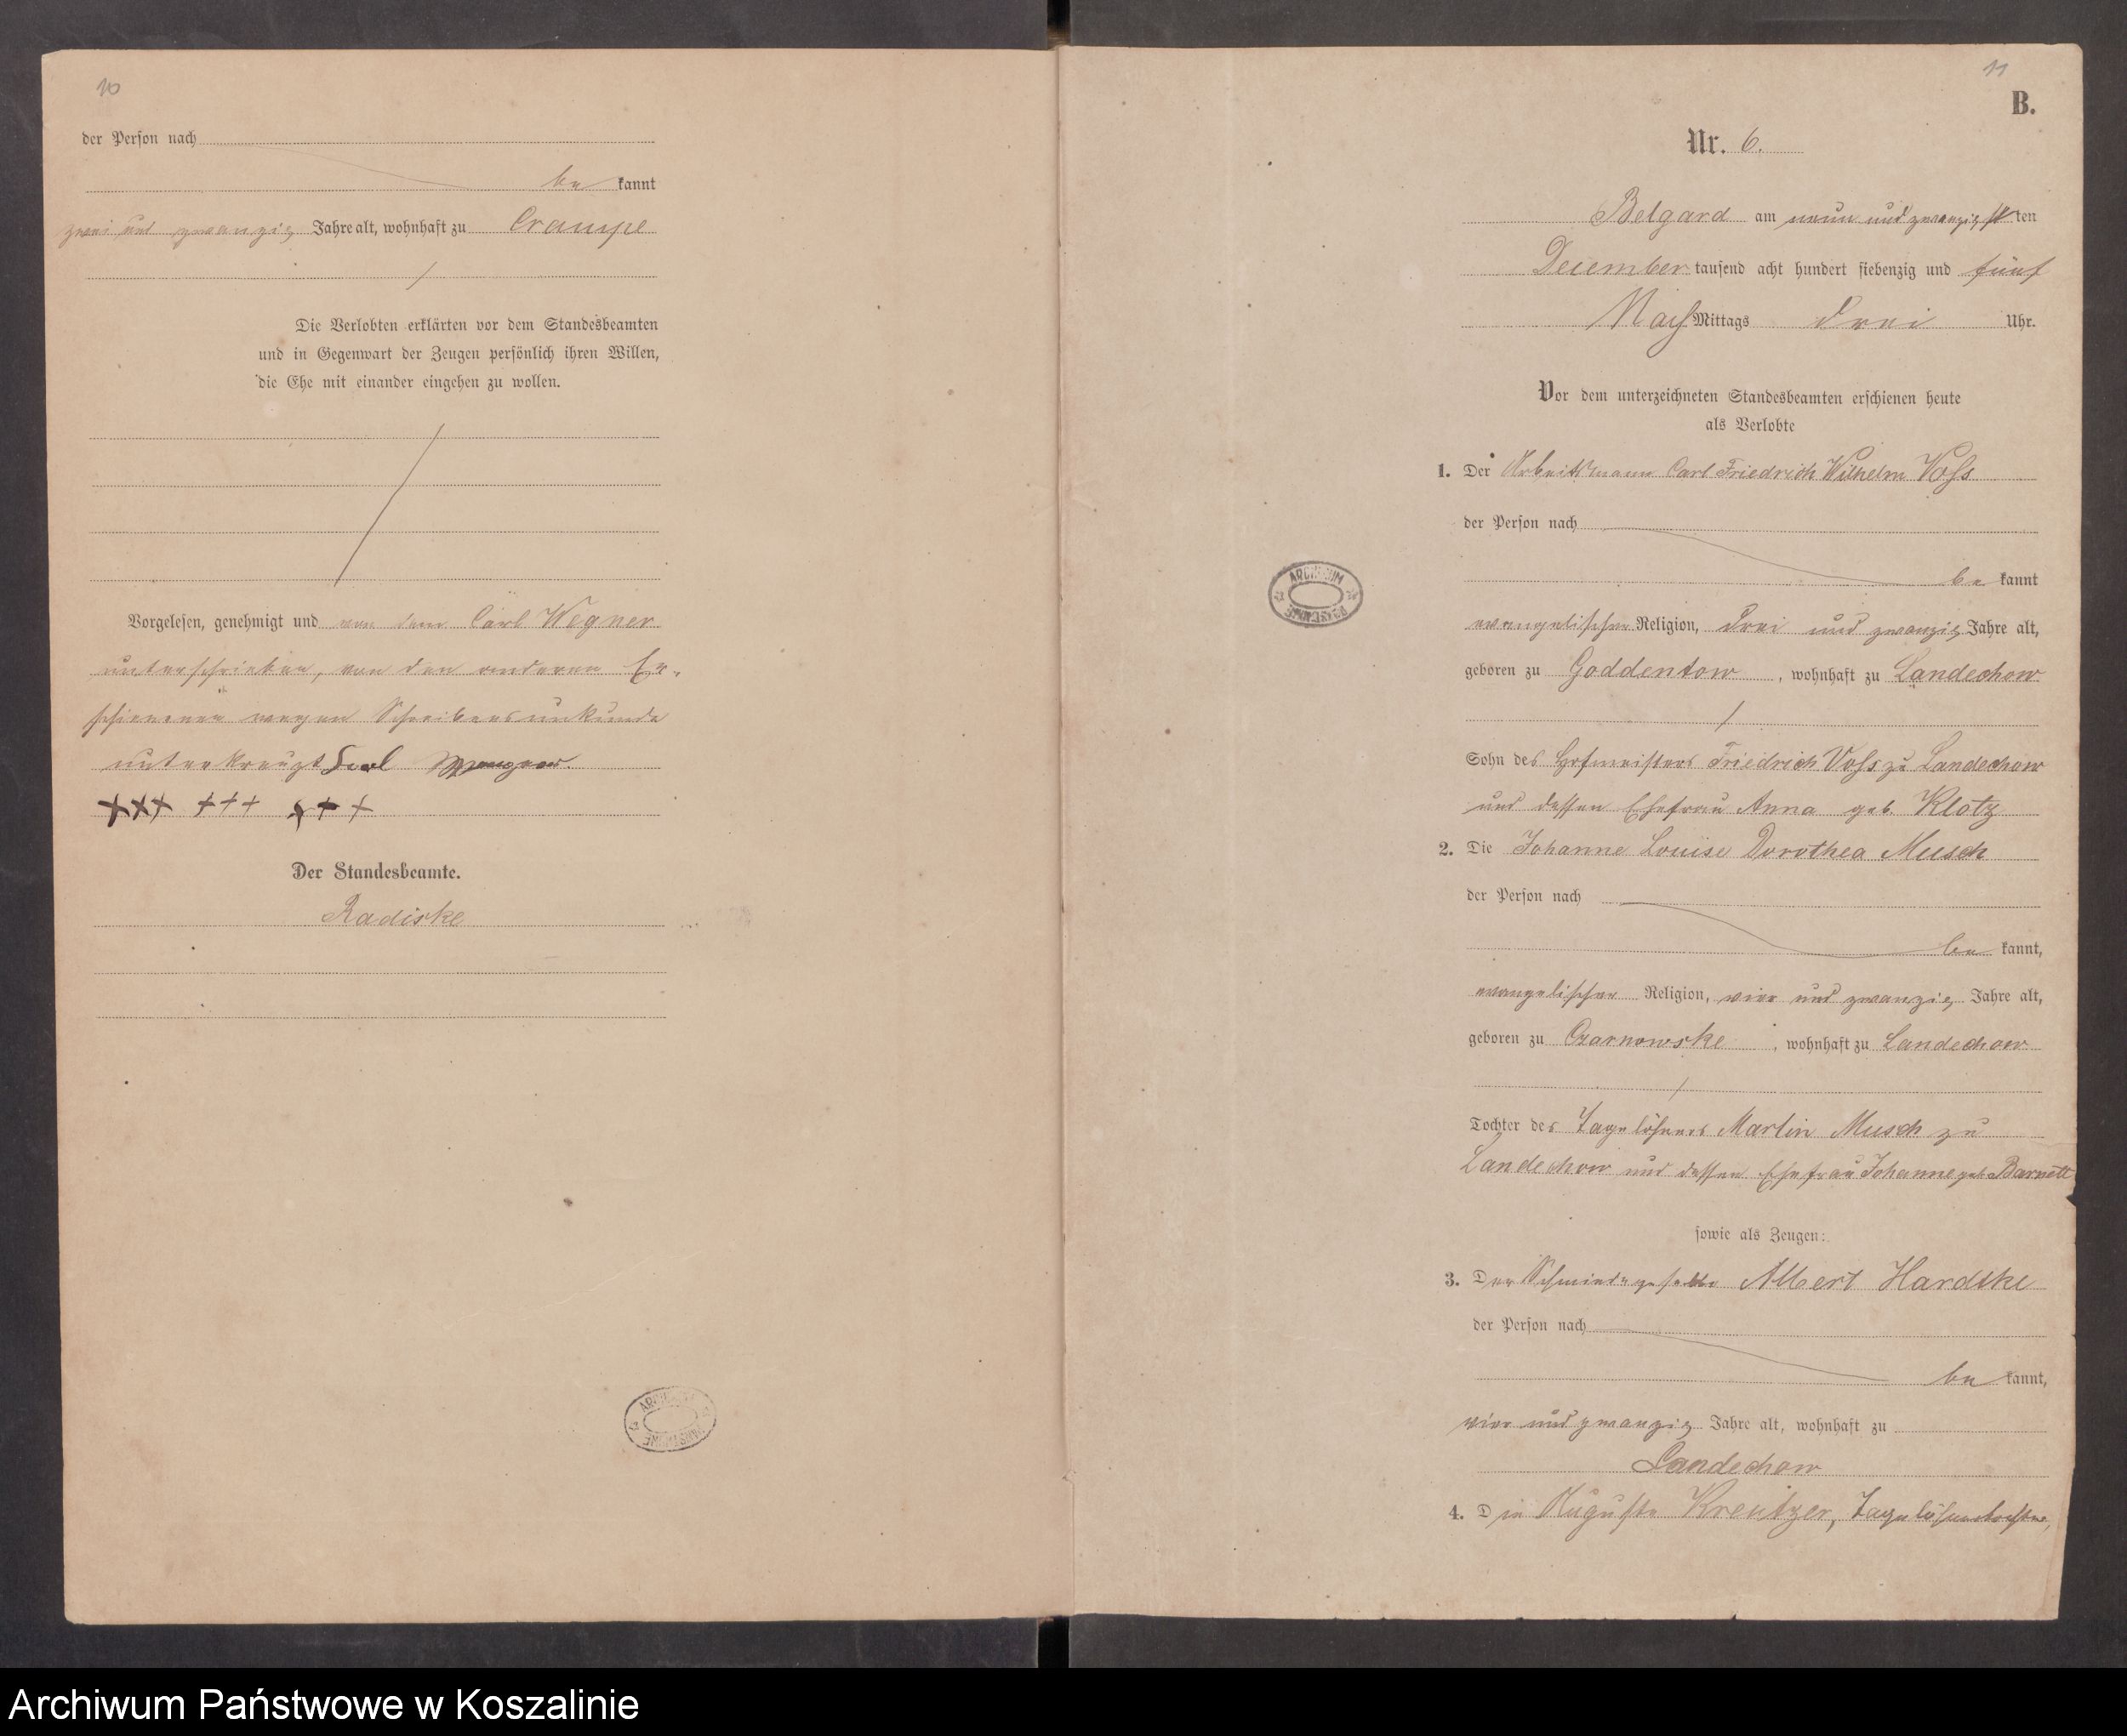 10
der Person nach
be kannt
zwei und zwanzig Jahre alt, wohnhaft zu Crampe
Die Verlobten erklärten vor dem Standesbeamten
und in Gegenwart der Zeugen persönlich ihren Willen,
die Ehe mit einander eingehen zu wollen.
Vorgelesen, genehmigt und von dem Carl Wegner
unterschrieben, von den anderen Er-
schienenen wegen Schreibensunkunde
unterkreuzt Carl
+++ +++ +++
Der Standesbeamte.
Radiske
ARCHIWUM PAŃSTWOWE
11
B.
Nr. 6.
Belgard am neun und zwanzigsten
December tausend acht hundert siebenzig und fünf
Nach Mittags drei Uhr.
Vor dem unterzeichneten Standesbeamten erschienen heute
als Verlobte
1. Der Arbeitsmann Carl Friedrich Wilhelm Voss
der Person nach
be kannt
evangelischer Religion, drei und zwanzig Jahre alt,
geboren zu Goddentow, wohnhaft zu Landechow
Sohn des Hofmeisters Friedrich Voss zu Landechow
und dessen Ehefrau Anna geb. Klotz
2. Die Johanne Louise Dorothea Musch
der Person nach
be kannt,
evangelischer Religion, vier und zwanzig Jahre alt,
geboren zu Czarnowske, wohnhaft zu Landechow
Tochter des Tagelöhners Martin Musch zu
Landechow und dessen Ehefrau Johanne geb. Barnett
sowie als Zeugen:
3. Der Schmiedegeselle Albert Hardtke
der Person nach
be kannt,
vier und zwanzig Jahre alt, wohnhaft zu
Landechow
4. Die Auguste Kreutzer, Tagelöhnertochter,
ARCHIWUM PAŃSTWOWE
Archiwum Państwowe w Koszalinie